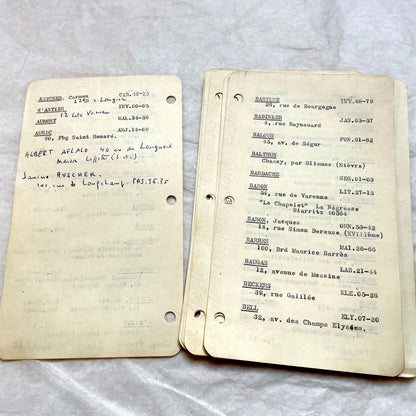 ABSCHER, Carmen CAB.46-23
d'ASTIER INV.00-05
12
AUBERT MAL.34-59
AURIC ANJ.14-89
60, Fbg Saint Honoré.
ALBERT AFLALO 40 av de Longueil
Maison Laffitte (S.&O.)
Janine AUSCHER.
rue de Longchamp. PAS.55.55
BABILEE INV.48-70
26, rue de Bourgogne
BABINIER JAS.63-57
4, rue Raynouard
BALSON FON.01-52
45, av. de Ségur
BALTHUS
Chassy, par Blismes (Nièvre)
BARDACHE SEG.01-03
BARON LIT.27-13
54, rue de Varenne
"Le Chapelet" La Négresse
Biarritz 40564
BARON, Jacques ORN.53-42
14, rue Simon Dereuse (XVIIIème)
BARRES MAI.26-66
100, Brd Maurice Barrès
BAUGAS LAB.21-44
12, avenue de Messine
BECKERS KLE.05-26
39, rue Galilée
BELL ELY.07-20
32, av. des Champs Elysées.